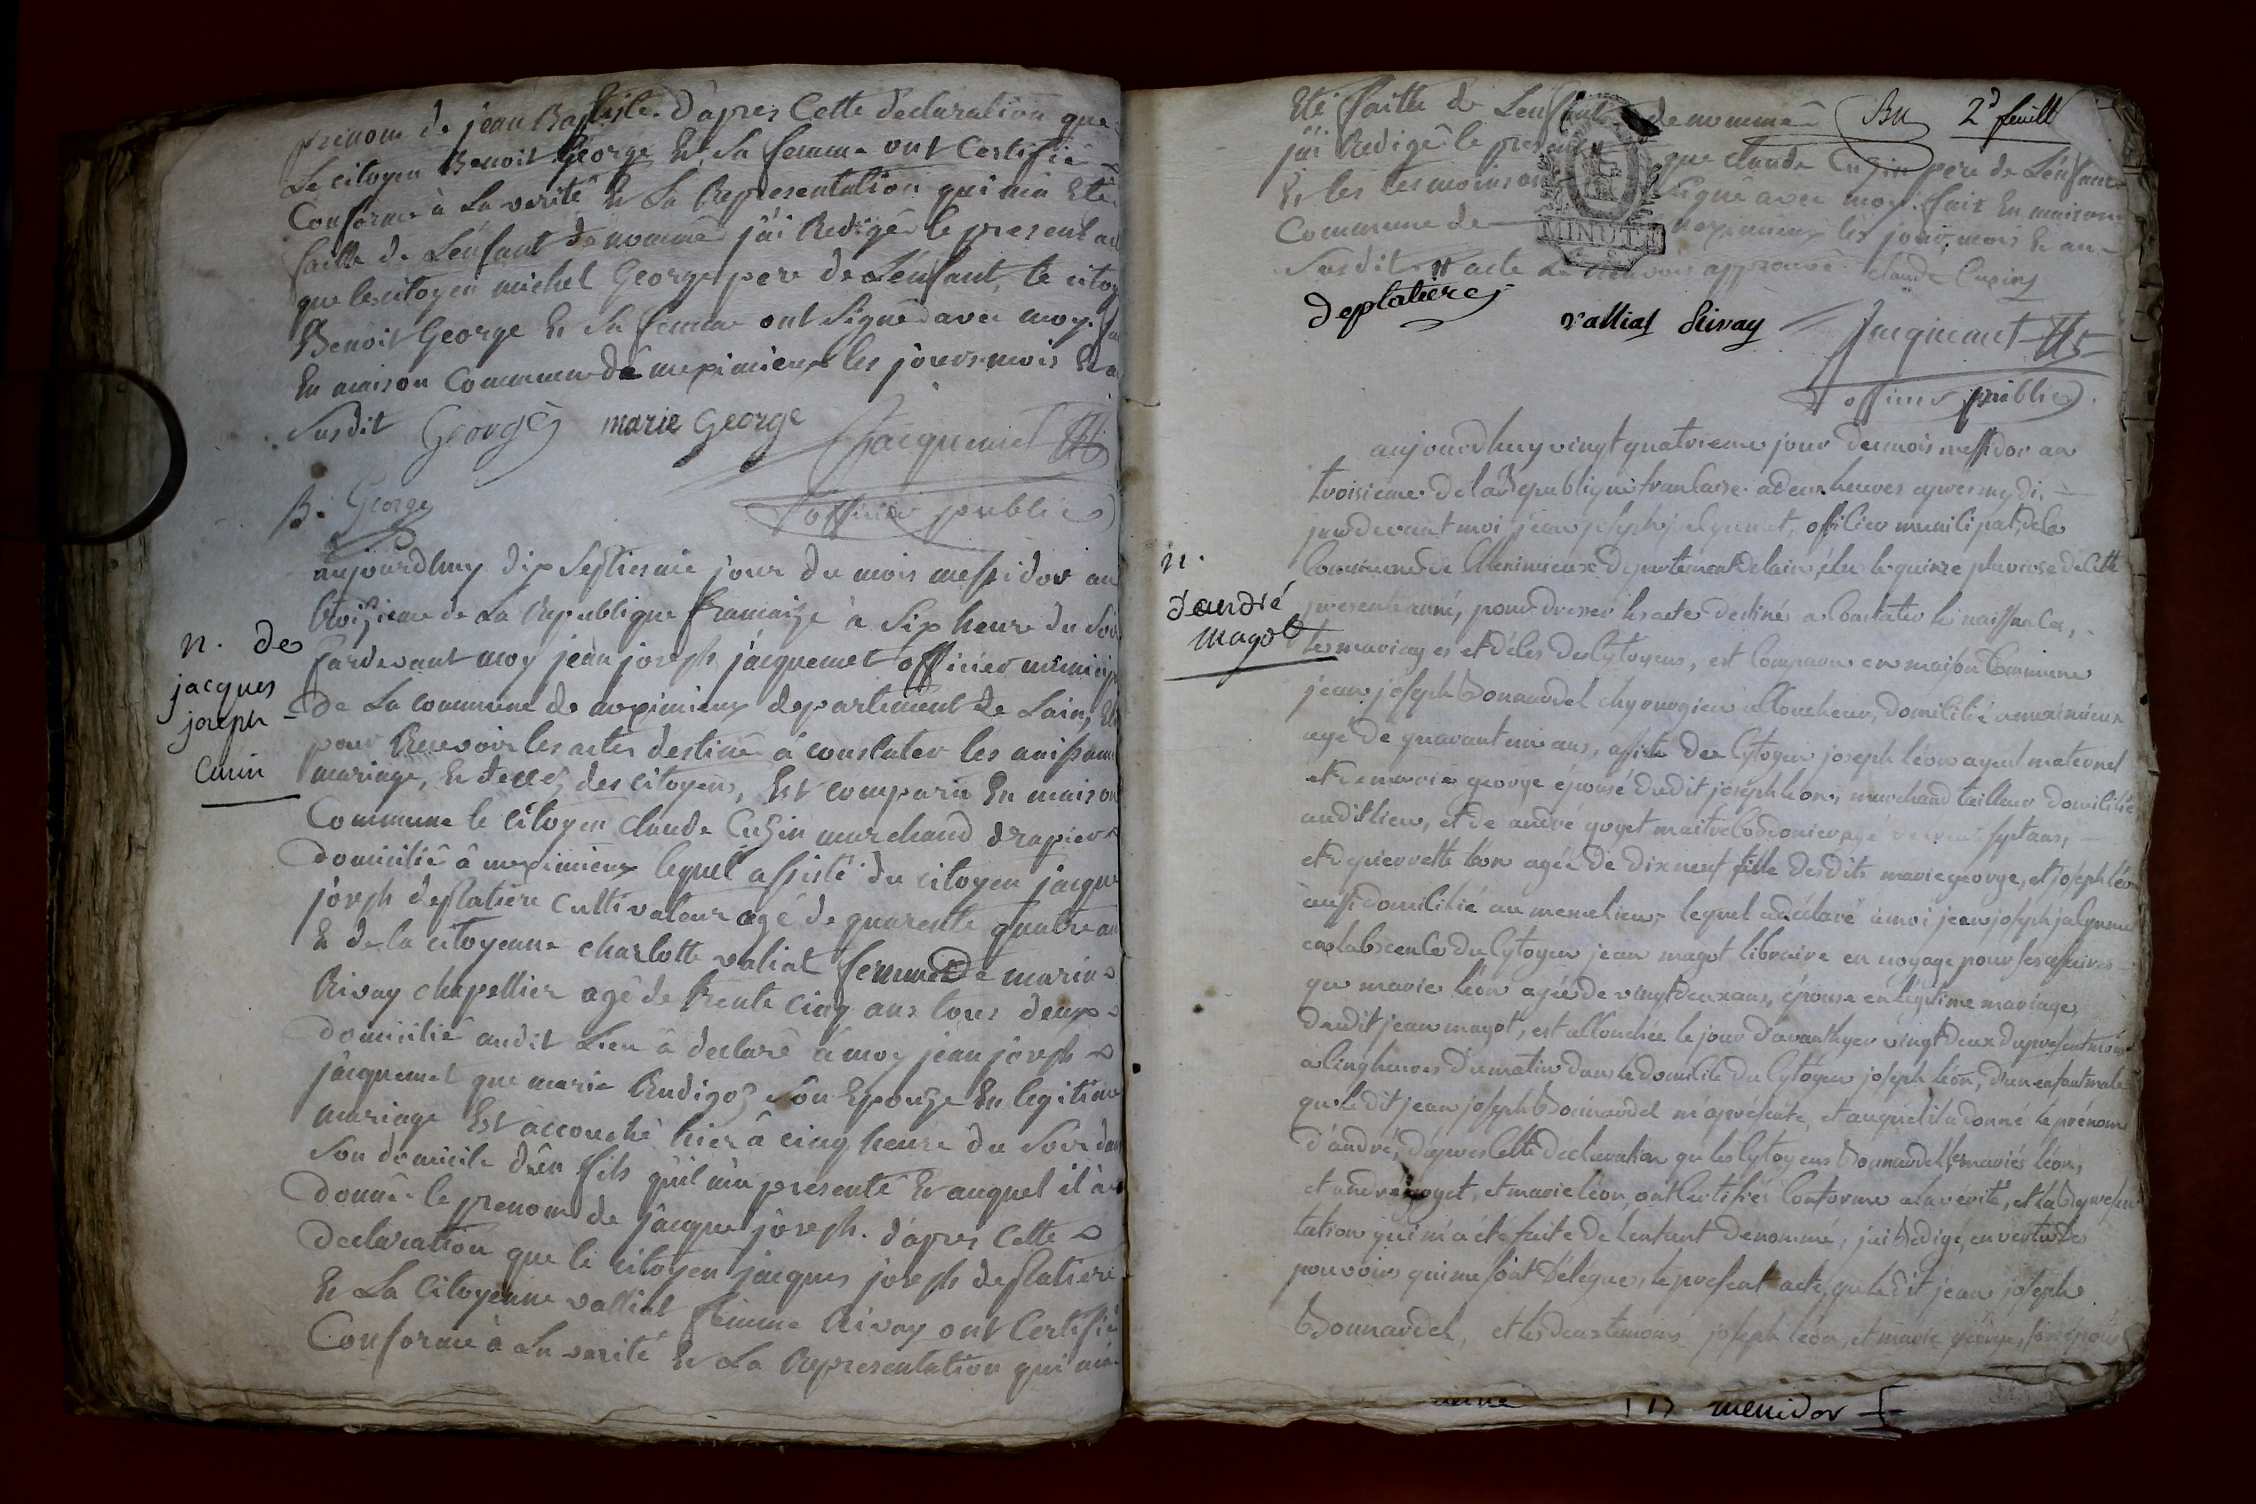 prenom de jean Baptiste. d'apres Cette declaration que
Le citoyen Benoit George Et Sa femme ont Certifié
Conforme à La verité Et La Representation qui m'a Eté
faitte de L'enfant denommé j'ai Redigé le present
que le citoyen michel George pere de L'enfant, le
Benoit George Et Sa femme ont Signé avec moy.
En maison Commune de meximieux les jours mois Et
Susdit George marie George Jacquemet
B. George officier public
aujourdhuy dix Septiesme jour du mois messidor an
troisieme de La Republique francaize à Six heure du Soir
Pardevant moy jean joseph jacquemet officier
de La commune de meximieux departement de Lain,
pour Recevoir les actes destiné à constater les
mariage, Et decès, des citoyens, Est comparu En maison
Commune le citoyen Claude Cuzin marchand drapier
domicilié à meximieux lequel assisté du citoyen jacque
joseph deplatiere Cultivateur agé de quarente quatre
Et de la citoyenne charlotte valiat femme de marin
Rivay chapellier agé de trente cinq ans tous deux
domicilié audit Lieu à declaré à moy jean joseph
jacquemet que marie Rudigoz Son Epouze En legitime
mariage Est accouché hier à cinq heure du Soir
Son domicile d'un fils qu'il m'a presenté Et auquel il à
donné le prenom de jacque joseph. d'apres Cette
declaration que le citoyen jacques joseph deplatiere
Et La Citoyenne valliat femme Rivay ont Certifié
Conforme à La verité Et La Representation qui m'a
n. de
jacques
joseph
Cusin
Eté faitte de L'enfant denommé Bu 2d feuillt
j'ai Redigé le present que claude Cuzin pere de L'enfant
Et les tesmoins ont Signé avec moy. fait En maison
Commune de meximieux les jour, mois Et an
MINUTE
Susdit acte approuvé claude Cuzin
deplatieres valliat Rivay Jacquemet
officier public
aujourdhuy vingt quatrieme jour du mois messidor an
troisieme de la Republique francaise. a deux heures apres mydi,
pardevant moi jean joseph jacquemet, officier municipal, de la
Commune de Meximieux departement de lain, élu le quinze pluviose de Cette
presente année, pour dresser les actes destinés a Constater les naissances,
les mariages et décès des Cytoyens, est Comparu en maison Commune
jean joseph Bonnardel chyrurgien accoucheur, domicilié a meximieux
agé de quarant un ans, assisté du Cytoyen joseph léon ayeul maternel
et de marie george épouse dudit joseph leon, marchand tailleur domicilié
audit lieu, et de andré goyet maitre Cordonier agé sept ans,
et de pierrette léon agée de dix neuf fille desdits marie george, et joseph léon
aussi domicilié au meme lieu, lequel a déclaré à moi jean joseph jacquemet
en labscence du Cytoyen jean magot libraire en voyage pour ses affaires
que marie léon agée de vingt deux ans, épouse en légitime mariage,
dudit jean magot, est accouchée le jour d'avanthyer vingt deux du present mois
a cinq heures du matin dans le domicile du Cytoyen joseph léon, d'un enfant male
que ledit jean joseph Bonnardel m'a présenté, et auquel il a donné le prénom
d'andré, d'apres Cette declaration que les Cytoyens Bonnardel, mariés léon,
et andré goyet, et marie léon, ont Certifiés Conforme a la vérité, et la Represen
tation qui m'a été faite de lenfant dénommé, jai Redigé, en vertu des
pouvoirs qui me sont délégués, le present acte, que ledit jean joseph
Bonnardel, et les deux temoins joseph léon, et marie george, son épouse
n.
d'andré
magot
messidor